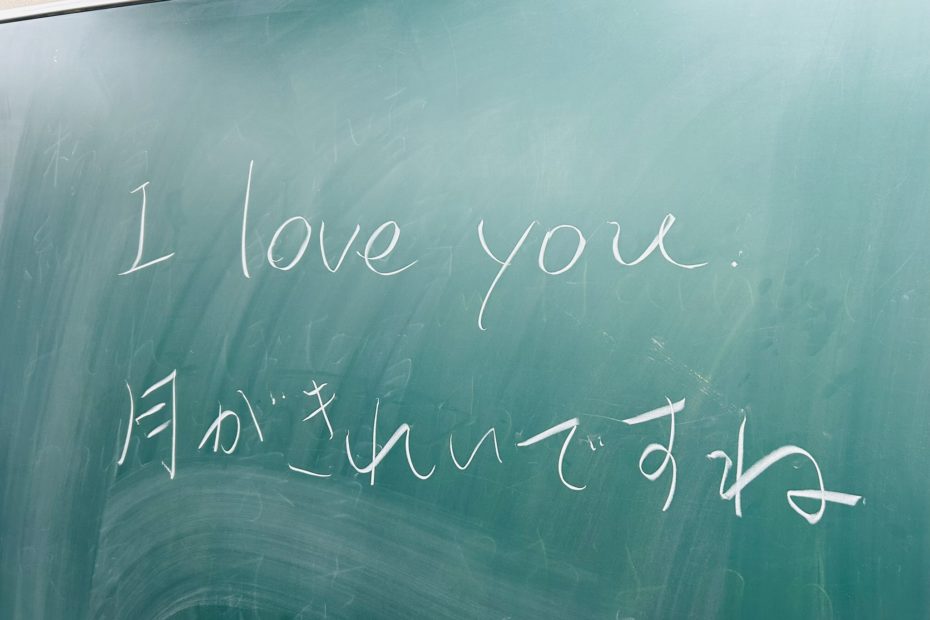 I love you.
月がきれいですね